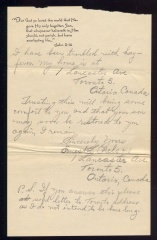 "For God so loved the world that He
gave His only begotten Son,
that whosoever believeth in Him
should not perish, but have
everlasting life."
John 3:16
I have been troubled with hay
fever. My home is at
1 Lancaster Ave
Toronto 5.
Ontario, Canada.
Trusting this will bring some
comfort to you and that your son
may soon be restored to you
again I remain
Sincerely Yours
1 Lancaster Ave
Toronto 5.
Ontario, Canada.
P.S. If you answer this please
letter to Toronto address
as I do not intend to be here long.